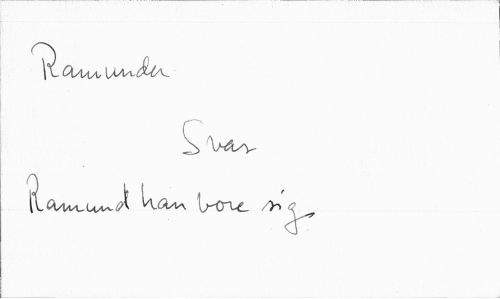 Ramunder
Svar
Ramund han vore sig